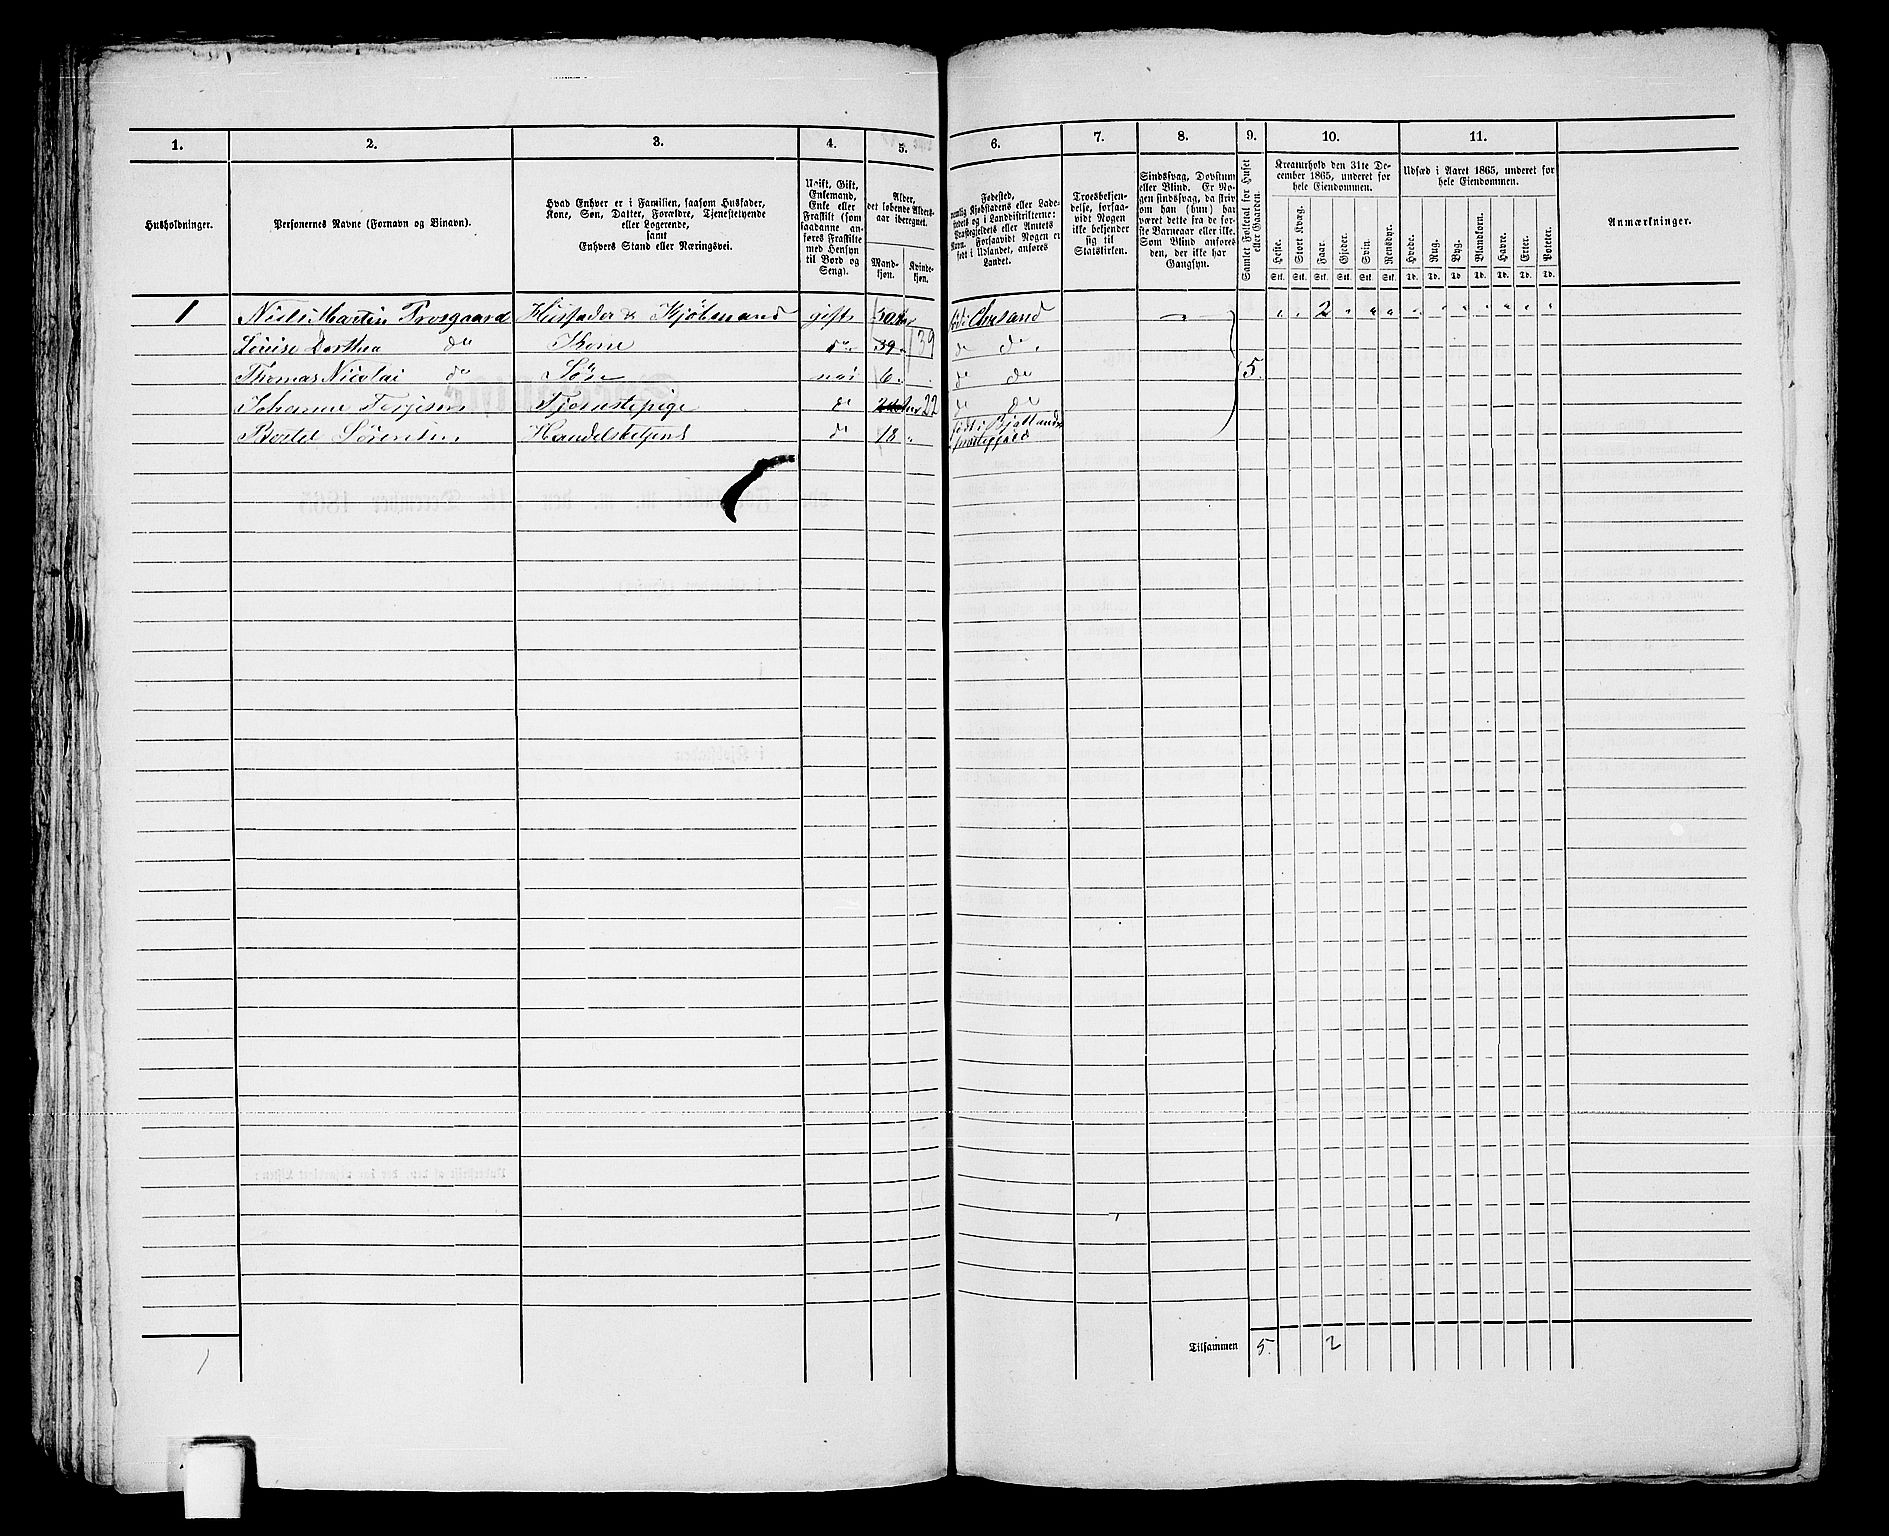 1.
2.
3.
4.
5.
6.
7.
8.
9.
10.
11.
Husholdninger.
Personernes Navne (Fornavn og Binavn).
Hvad Enhver er i Familien, saasom Husfader,
Kone, Søn, Datter, Forældre, Tjenestetyende
eller Logerende,
samt
Enhvers Stand eller Næringsvei.
Ugift, Gift,
Enkemand,
Enke eller
Fraskilt (som
saadanne an-
føres Fraskilte
med Hensyn
til Bord og
Seng).
Alder,
det løbende Alders-
aar iberegnet.
Mand-
kjøn.
Kvinde-
kjøn.
Fødested,
nemlig Kjøbstadens eller Lade-
stedets og i Landdistrikterne:
Præstegjeldets eller Amtets
Navn. Forsaavidt Nogen er
født i Udlandet, anføres
Landet.
Troesbekjen-
delse, forsaa-
vidt Nogen
ikke bekjender
sig til
Statskirken.
Sindssvag, Døvstum
eller Blind. Er No-
gen sindssvag, da skriv
om han (hun) har
været dette fra de før-
ste Barneaar eller ikke.
Som Blind anføres
den, der ikke har
Gangsyn.
Samlet Folketal for Huset
eller Gaarden.
Kreaturhold den 31te De-
cember 1865, underet for
hele Eiendommen.
Heste.
Stort Kvæg.
Faar.
Gjeder.
Svin.
Rensdyr.
Stk. Stk. Stk. Stk. Stk. Stk.
Udsæd i Aaret 1865, underet for
hele Eiendommen.
Hvede.
Rug.
Byg.
Blandkorn.
Havre.
Erter.
Poteter.
Td. Td. Td. Td. Td. Td. Td.
Anmærkninger.
1 Niels Martin Husfader & Kjøbmand gift 2
Louise Dorthea do Kone do 39 39 do do
Thomas Nicolai do Søn ugi 6 do do 5.
Johanne Tjenestepige do 22 do do
Bertel Sørensen Handelsbetjent do 18 født i Bjellands
præstegjeld
Tilsammen 5. 2
1